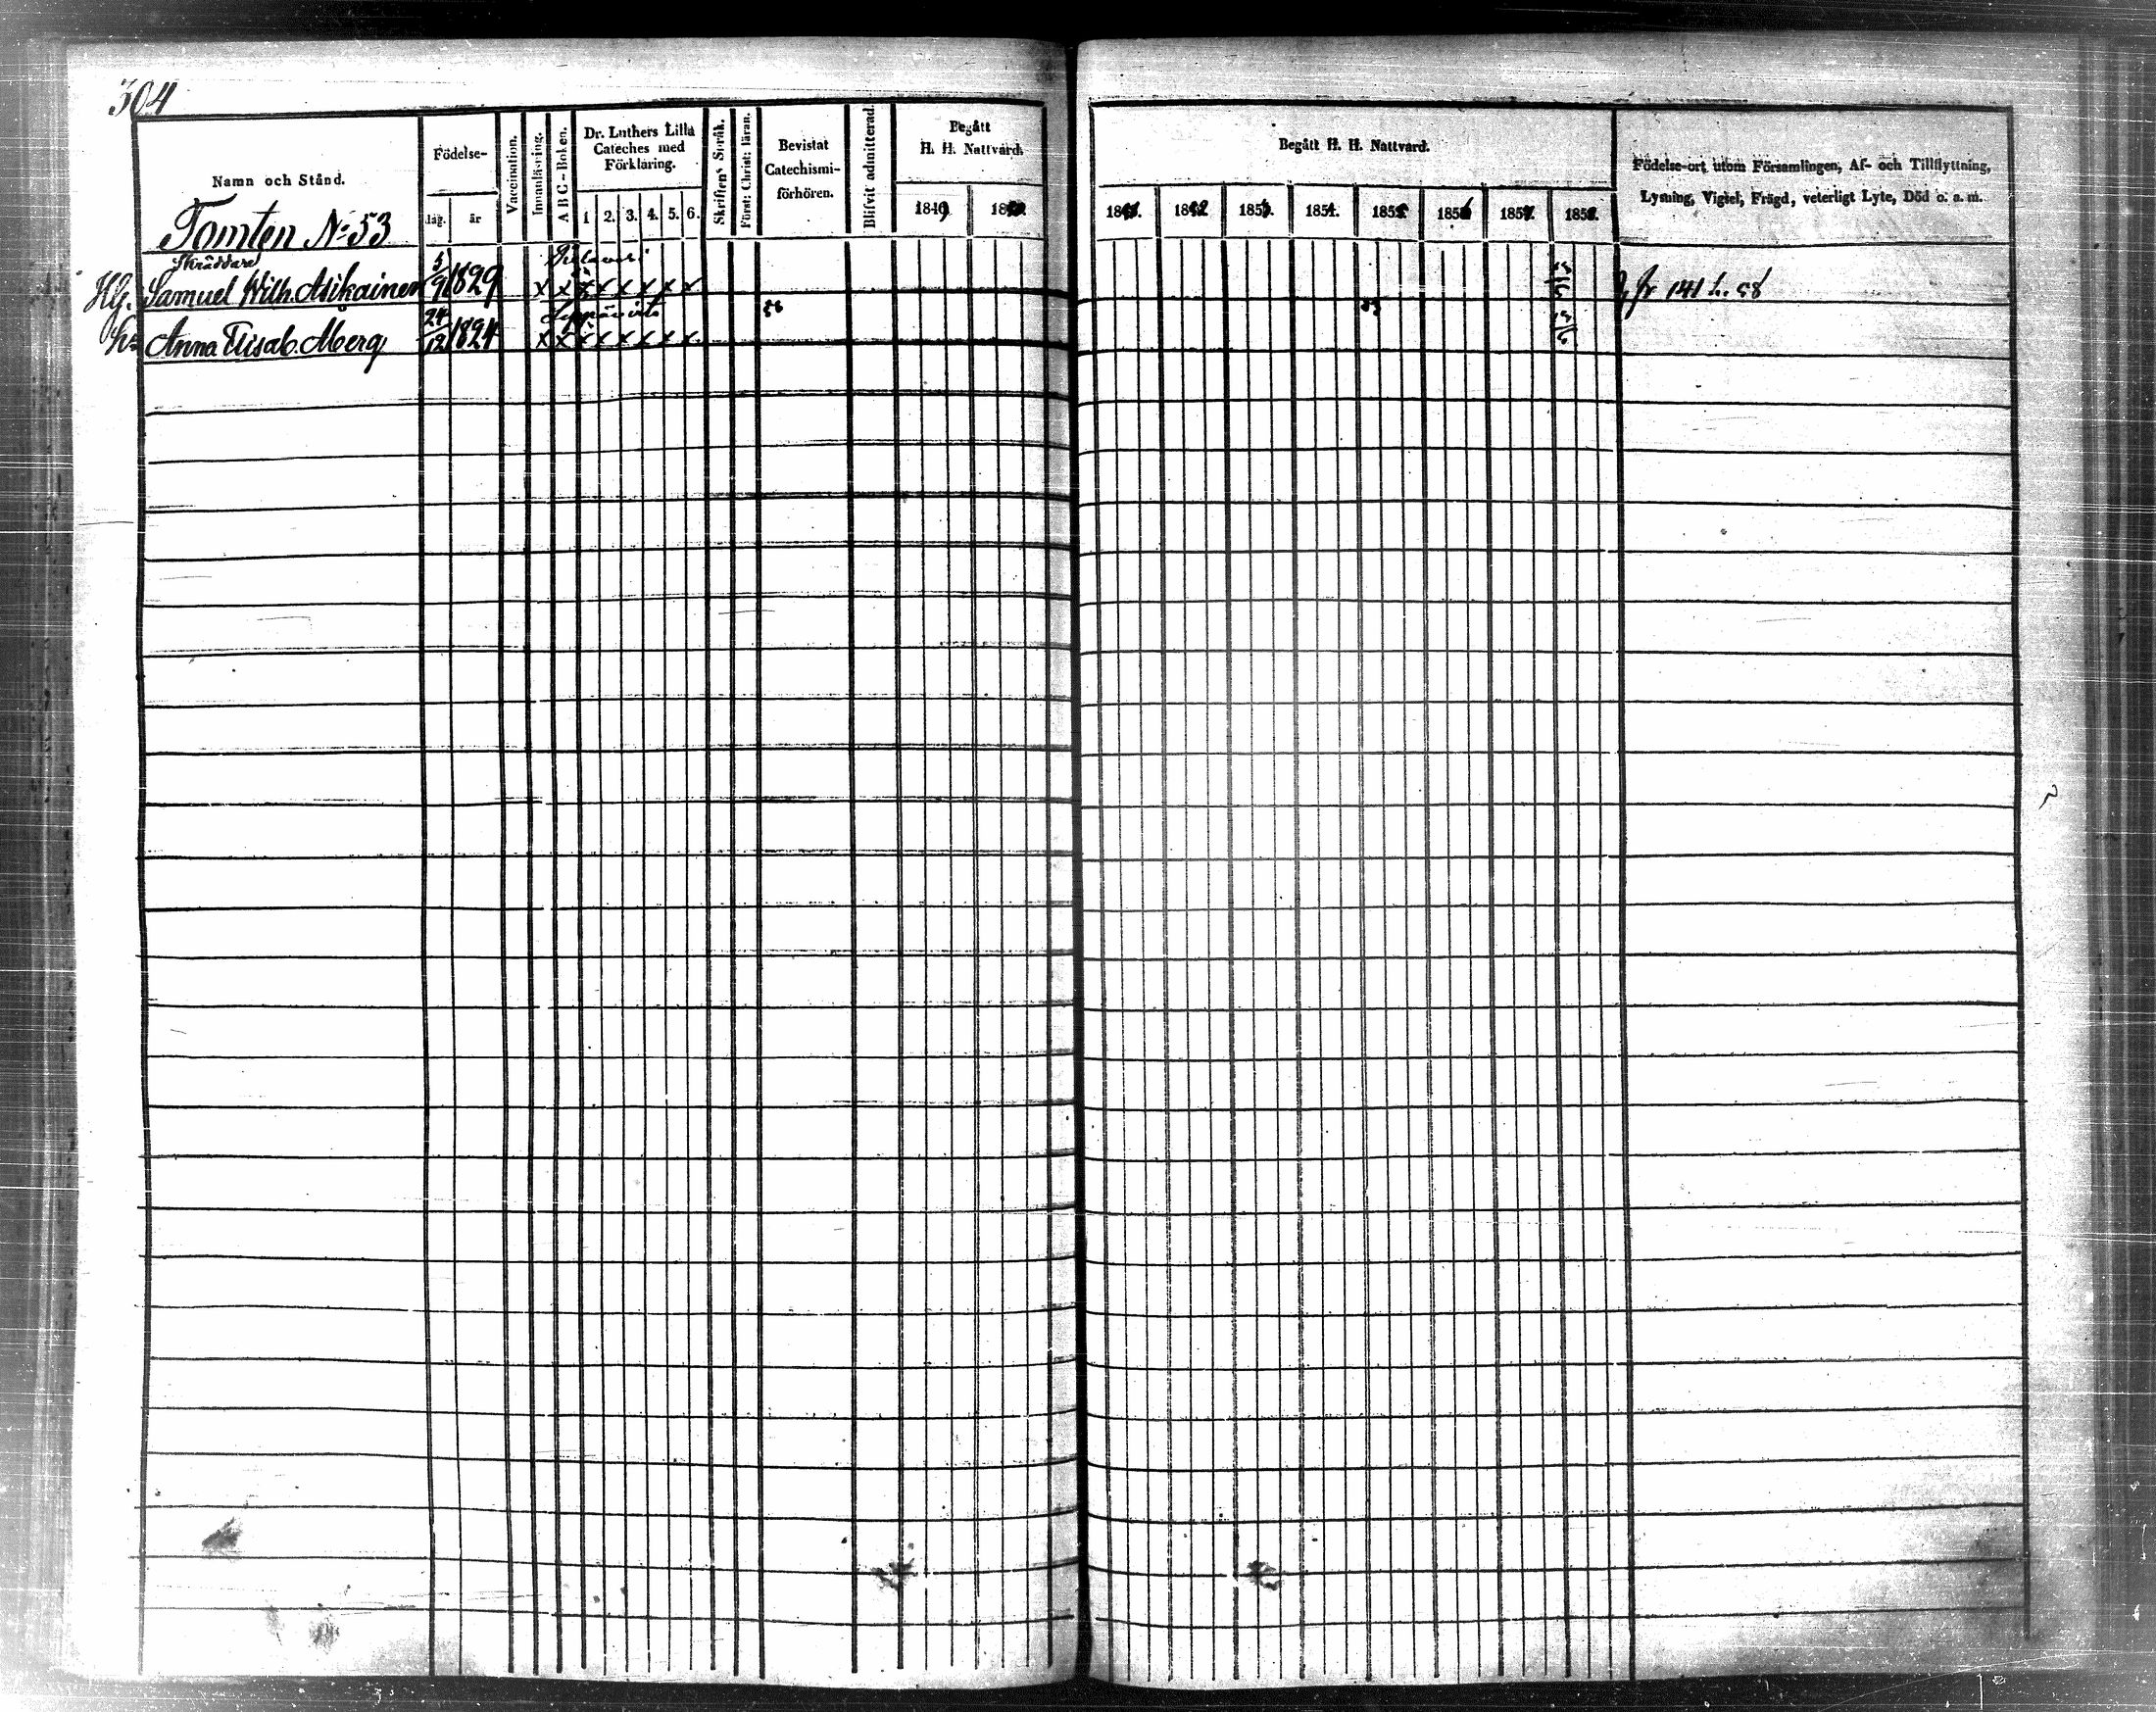 304
Namn och Stånd.
Födelse-
dag.
år
Vaccination.
Innanläsning.
A B C-Boken.
Dr. Luthers Lilla
Cateches med
Förklaring.
1 2. 3. 4. 5. 6.
Skriftens Språk.
Först: Christ: läran.
Bevistat
Catechismi-
förhören.
Blifvit admitterad.
Begått
H. H. Nattvard.
1849 1850
Begått H. H. Nattvard.
1851. 1852 1853. 1854. 1855 1856 1857. 1858.
Födelse-ort utom Församlingen, Af- och Tillflyttning,
Lysning, Vigsel, Frägd, veterligt Lyte, Död o. a. m.
Tomten No 53
Skräddare
Hg. Samuel Wilh. Asikainen 5/9 1829 x x x x x x x x fr 141 h. 58
hu Anna Elisab. Alberg 24/12 1824 x x x x x x x x